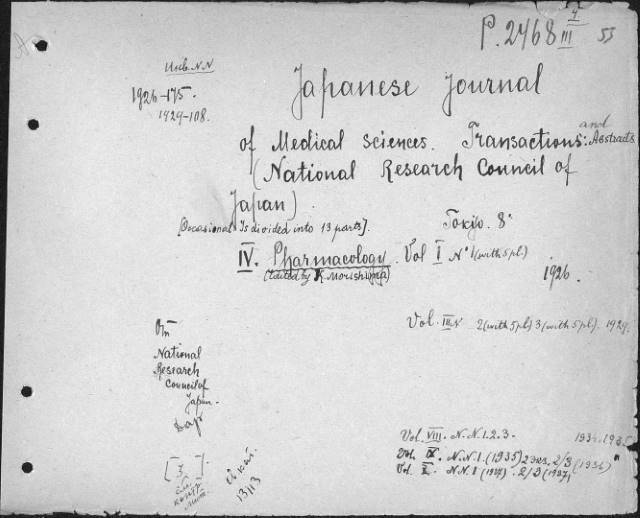 P.2468 I/III 53
Инв. N.N
1926-175.
1929-108.
Japanese Journal
of Medical Sciences. Transactions: and Abstracts
(National Research Council of
Japan)
[Occasional. Is divided into 13 parts]. Tokyo. 8°
IV. Pharmacology. Vol I N°1 (with 5 pl.)
(Edited by K. Morishima) 1926.
Vol. III N 2 (with 5 pl) 3 (with 5 pl). 1929.
От
National
Research
Council of
Japan.
Дар
Vol. VIII. N.N. 1. 2. 3. 1934. 1935
Vol. IX. N.N. 1. (1935) 2 экз. 2/3 (1936)
Vol. X. N.N. 1 (1937). 2/3 (1937)
[3].
см.
контр.
лист.
13/13